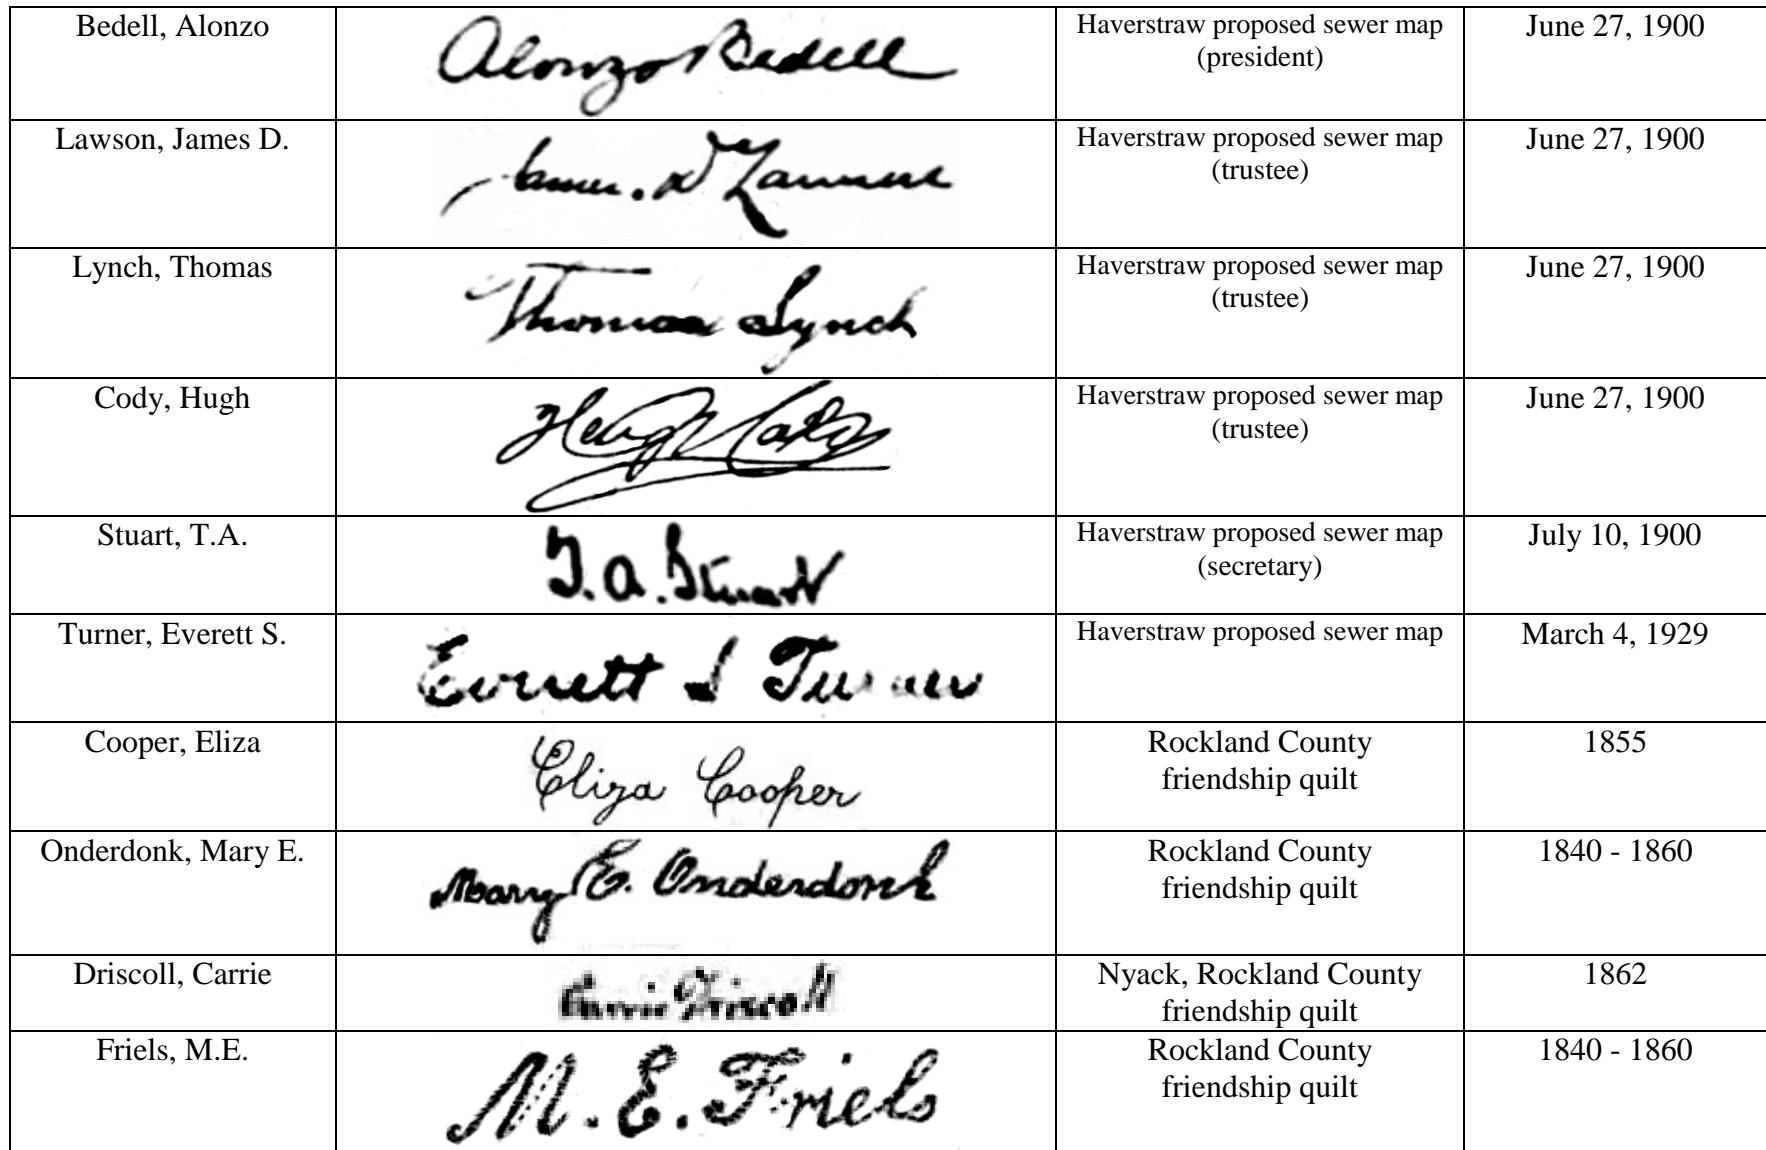 Bedell, Alonzo
Alonzo Bedell
Haverstraw proposed sewer map
(president)
June 27, 1900
Lawson, James D.
James. D
Haverstraw proposed sewer map
(trustee)
June 27, 1900
Lynch, Thomas
Thomas Lynch
Haverstraw proposed sewer map
(trustee)
June 27, 1900
Cody, Hugh
Hugh Cody
Haverstraw proposed sewer map
(trustee)
June 27, 1900
Stuart, T.A.
T.A. Stuart
Haverstraw proposed sewer map
(secretary)
July 10, 1900
Turner, Everett S.
Everett S Turner
Haverstraw proposed sewer map
March 4, 1929
Cooper, Eliza
Eliza Cooper
Rockland County
friendship quilt
1855
Onderdonk, Mary E.
Mary E. Onderdonk
Rockland County
friendship quilt
1840 - 1860
Driscoll, Carrie
Carrie Driscoll
Nyack, Rockland County
friendship quilt
1862
Friels, M.E.
M. E. Friels
Rockland County
friendship quilt
1840 - 1860